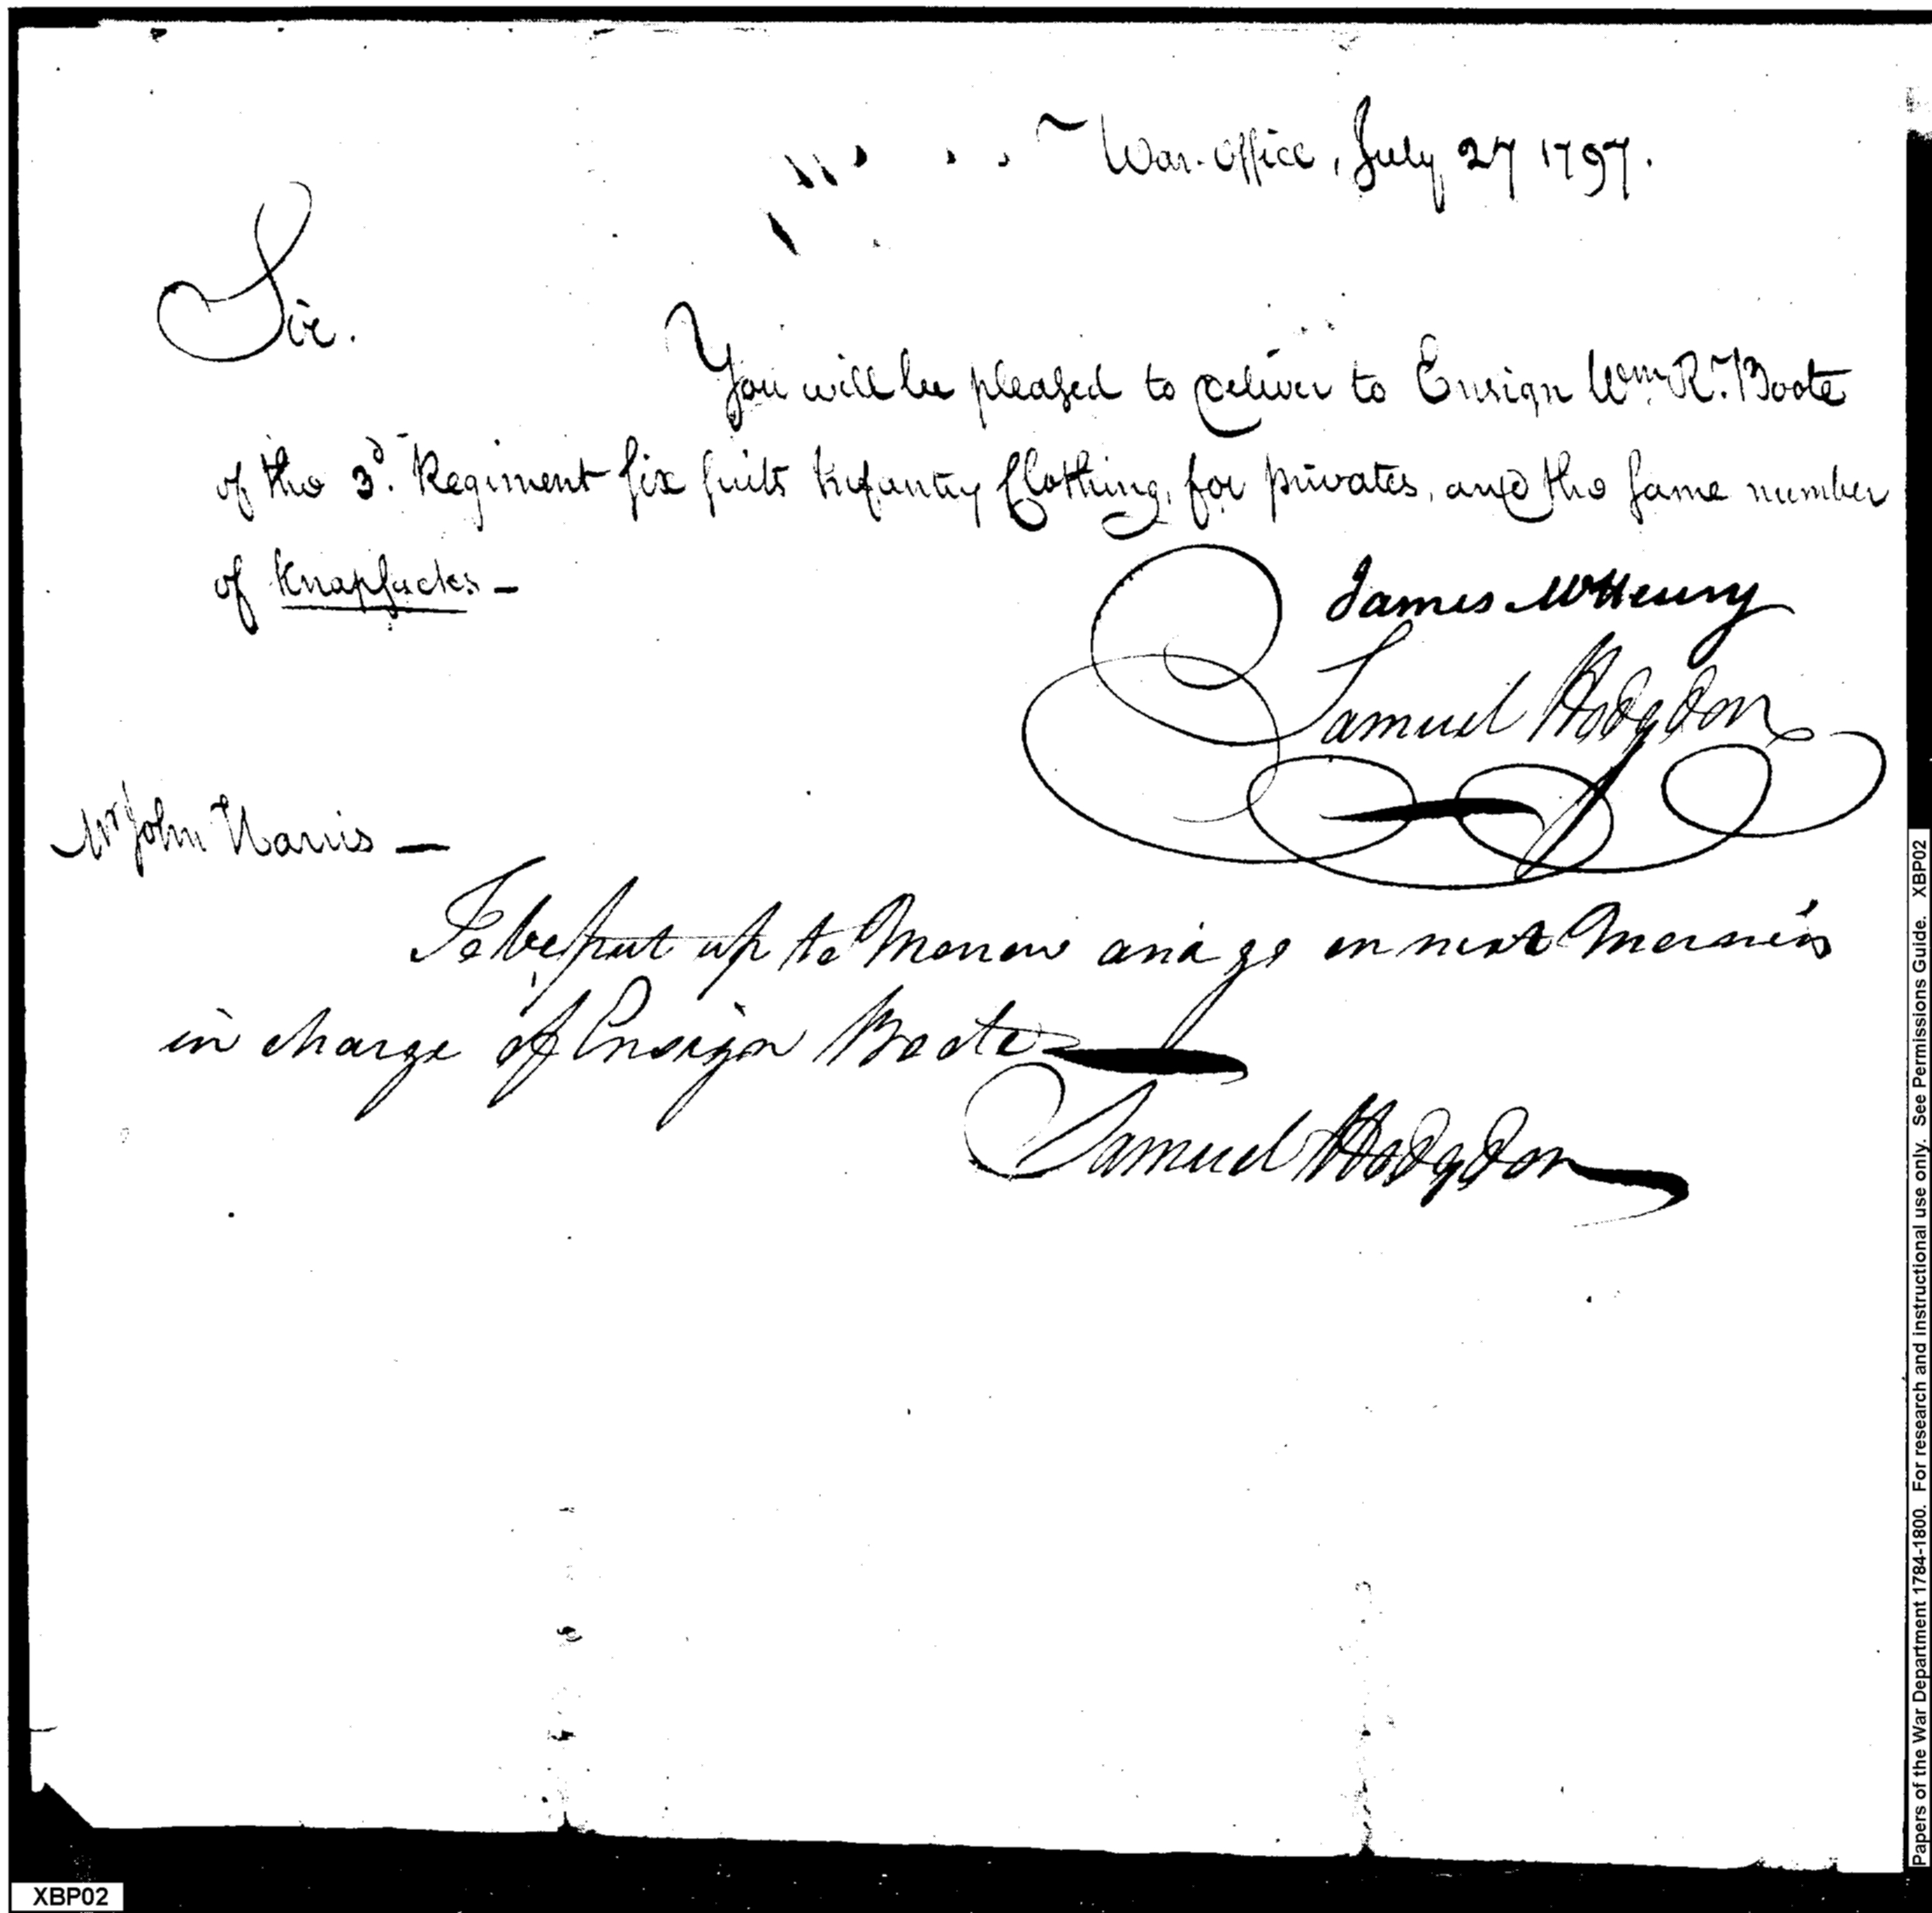 War-office, July 27 1797.
Sir.
You will be pleased to deliver to Ensign Wm. R. Boote
of the 3d. Regiment six suits Infantry Clothing, for privates, and the same number
of Knapsacks —
James McHenry
Samuel Hodgdon
Mr John Harris —
To be put up to Morrow and go on next Morning
in charge of Ensign Boote
Samuel Hodgdon
Papers of the War Department 1784-1800. For research and instructional use only. See Permissions Guide. XBP02
XBP02